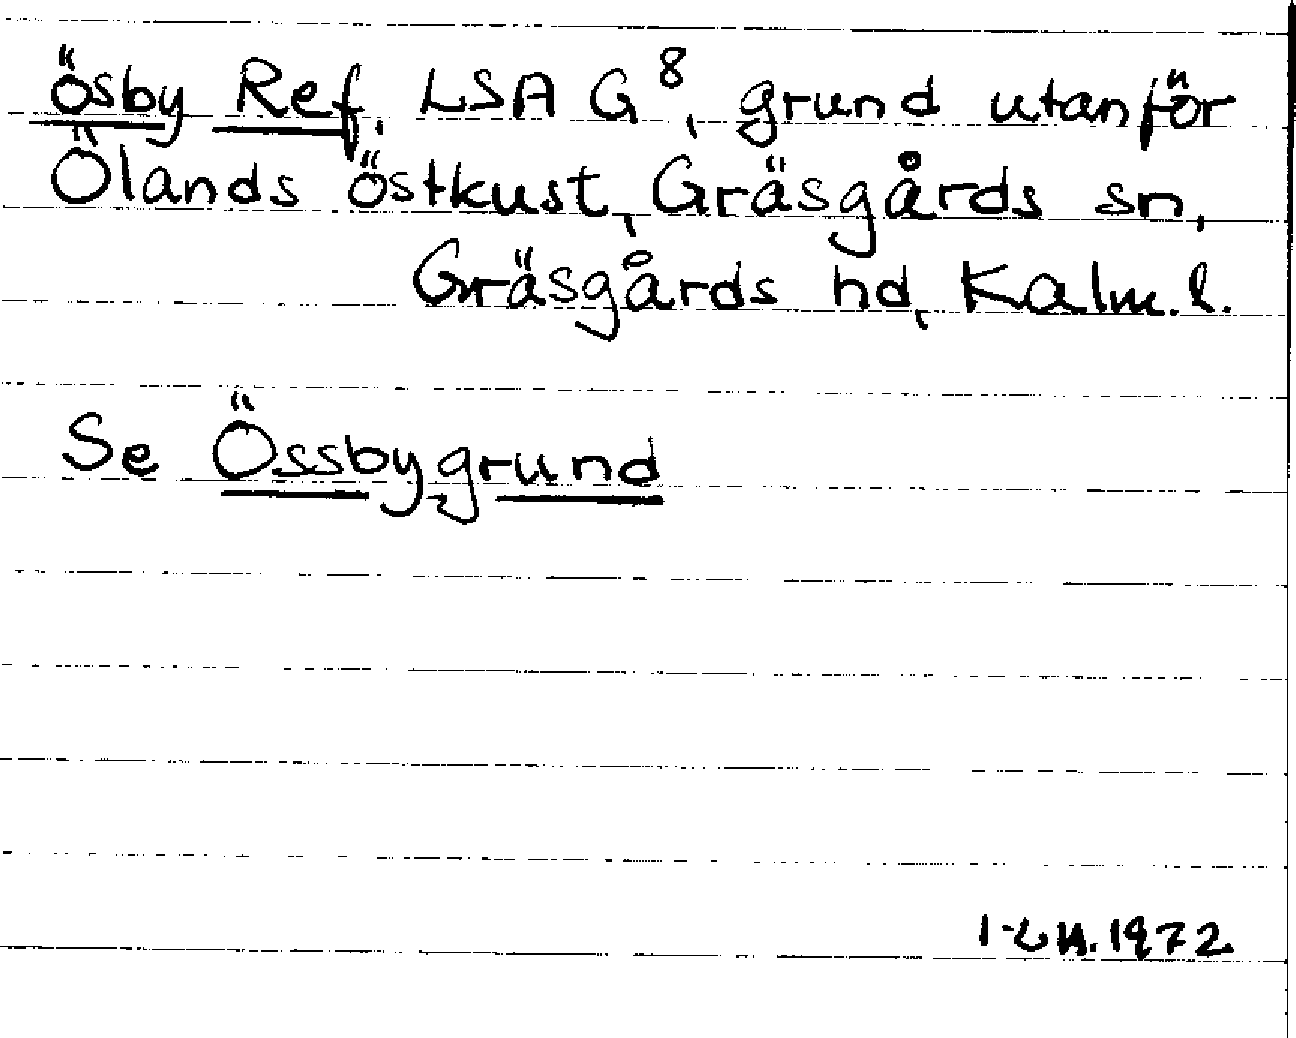 Ösby Ref. LSA G⁸, grund utanför
Ölands östkust, Gräsgårds sn,
Gräsgårds hd, Kalm. l.
Se Össbygrund
1972